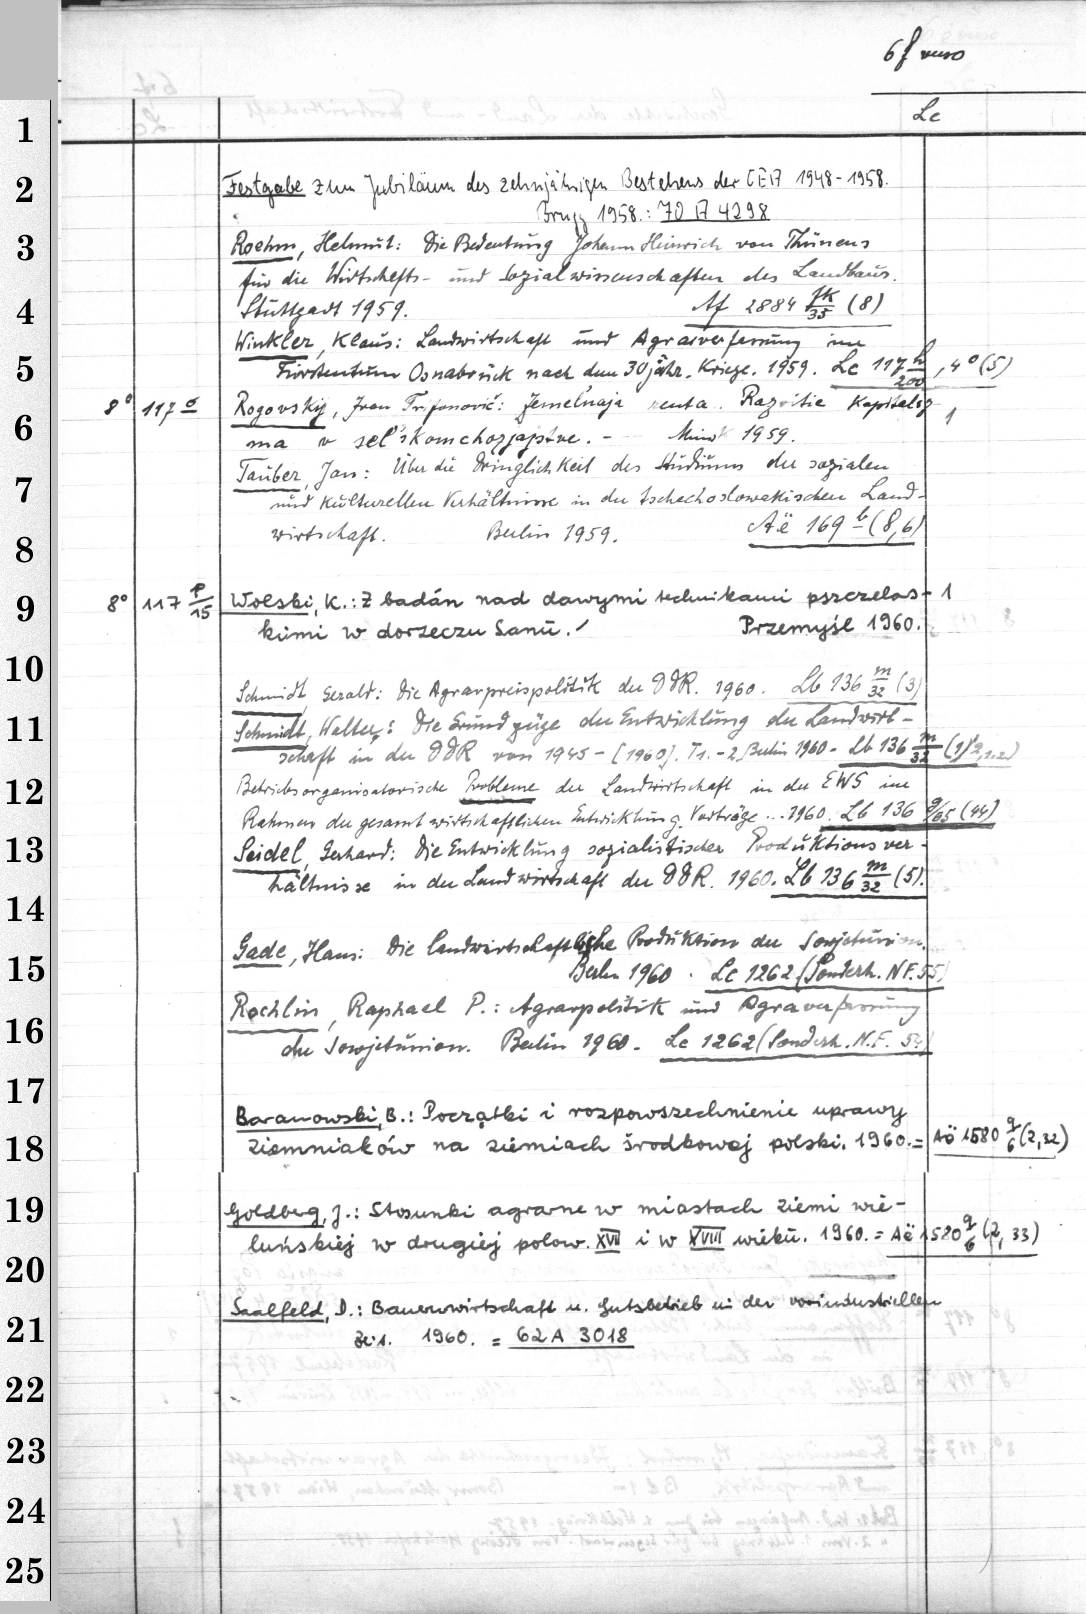 6f verso
Lc
1
2
3
4
5
6
7
8
9
10
11
12
13
14
15
16
17
18
19
20
21
22
23
24
25
Festgabe zum Jubiläum des zehnjährigen Bestehens der CEA 1948-1958.
Brugg 1958.: 70 A 4298
Roehm, Helmut: Die Bedeutung Johann Heinrich von Thünens
für die Wirtschafts- und Sozialwissenschaften des Landbaus.
Stuttgart 1959. Af 2884 fk/35 (8)
Winkler, Klaus: Landwirtschaft und Agrarverfassung im
Fürstentum Osnabrück nach dem 30jähr. Kriege. 1959. Lc 117 h/200, 4° (5)
8° 117 o Rogovskij, Ivan Trifonovič: Zemel'naja renta. Razvitie kapitaliz
ma v sel'skom chozjajstve. - Minsk 1959. 1
Tauber, Jan: Über die Dringlichkeit des Studiums der sozialen
und kulturellen Verhältnisse in der tschechoslowakischen Land-
wirtschaft. Berlin 1959. Aë 169 b (8,6)
8° 117 p/15 Wolski, K.: Z badán nad dawymi technikami pszczelas- 1
kimi w dorzeczu Sanu. Przemyśl 1960.
Schmidt, Gerald: Die Agrarpreispolitik der DDR. 1960. Lb 136 m/32 (3)
Schmidt, Walter: Die Grundzüge der Entwicklung der Landwirt-
schaft in der DDR von 1945-[1960]. T1.-2. Berlin 1960- Lb 136 m/32 (1)
Betriebsorganisatorische Probleme der Landwirtschaft in der EWG im
Rahmen der gesamtwirtschaftlichen Entwicklung. Vorträge...1960. Lb 136 g/65 (44)
Seidel, Gerhard: Die Entwicklung sozialistischer Produktionsver-
hältnisse in der Landwirtschaft der DDR. 1960. Lb 136 m/32 (5).
Gade, Hans: Die landwirtschaftliche Produktion der Sowjetunion.
Berlin 1960. Lc 1262 (Sonderh. N.F. 55)
Rochlin, Raphael P.: Agrarpolitik und Agrarverfassung
der Sowjetunion. Berlin 1960. Lc 1262 (Sonderh. N.F. 54)
Baranowski, B.: Początki i rozpowszechnienie uprawy
ziemniaków na ziemiach środkowej polski. 1960. = Aö 1580 q/6 (2,32)
Goldberg, J.: Stosunki agrarne w miastach ziemi wie-
luńskiej w drugiej polow. XVII i w XVIII wieku. 1960. = Aë 1580 q/6 (2, 33)
Saalfeld, D.: Bauernwirtschaft u. Gutsbetrieb in der vorindustriellen
Zeit. 1960. = 62 A 3018